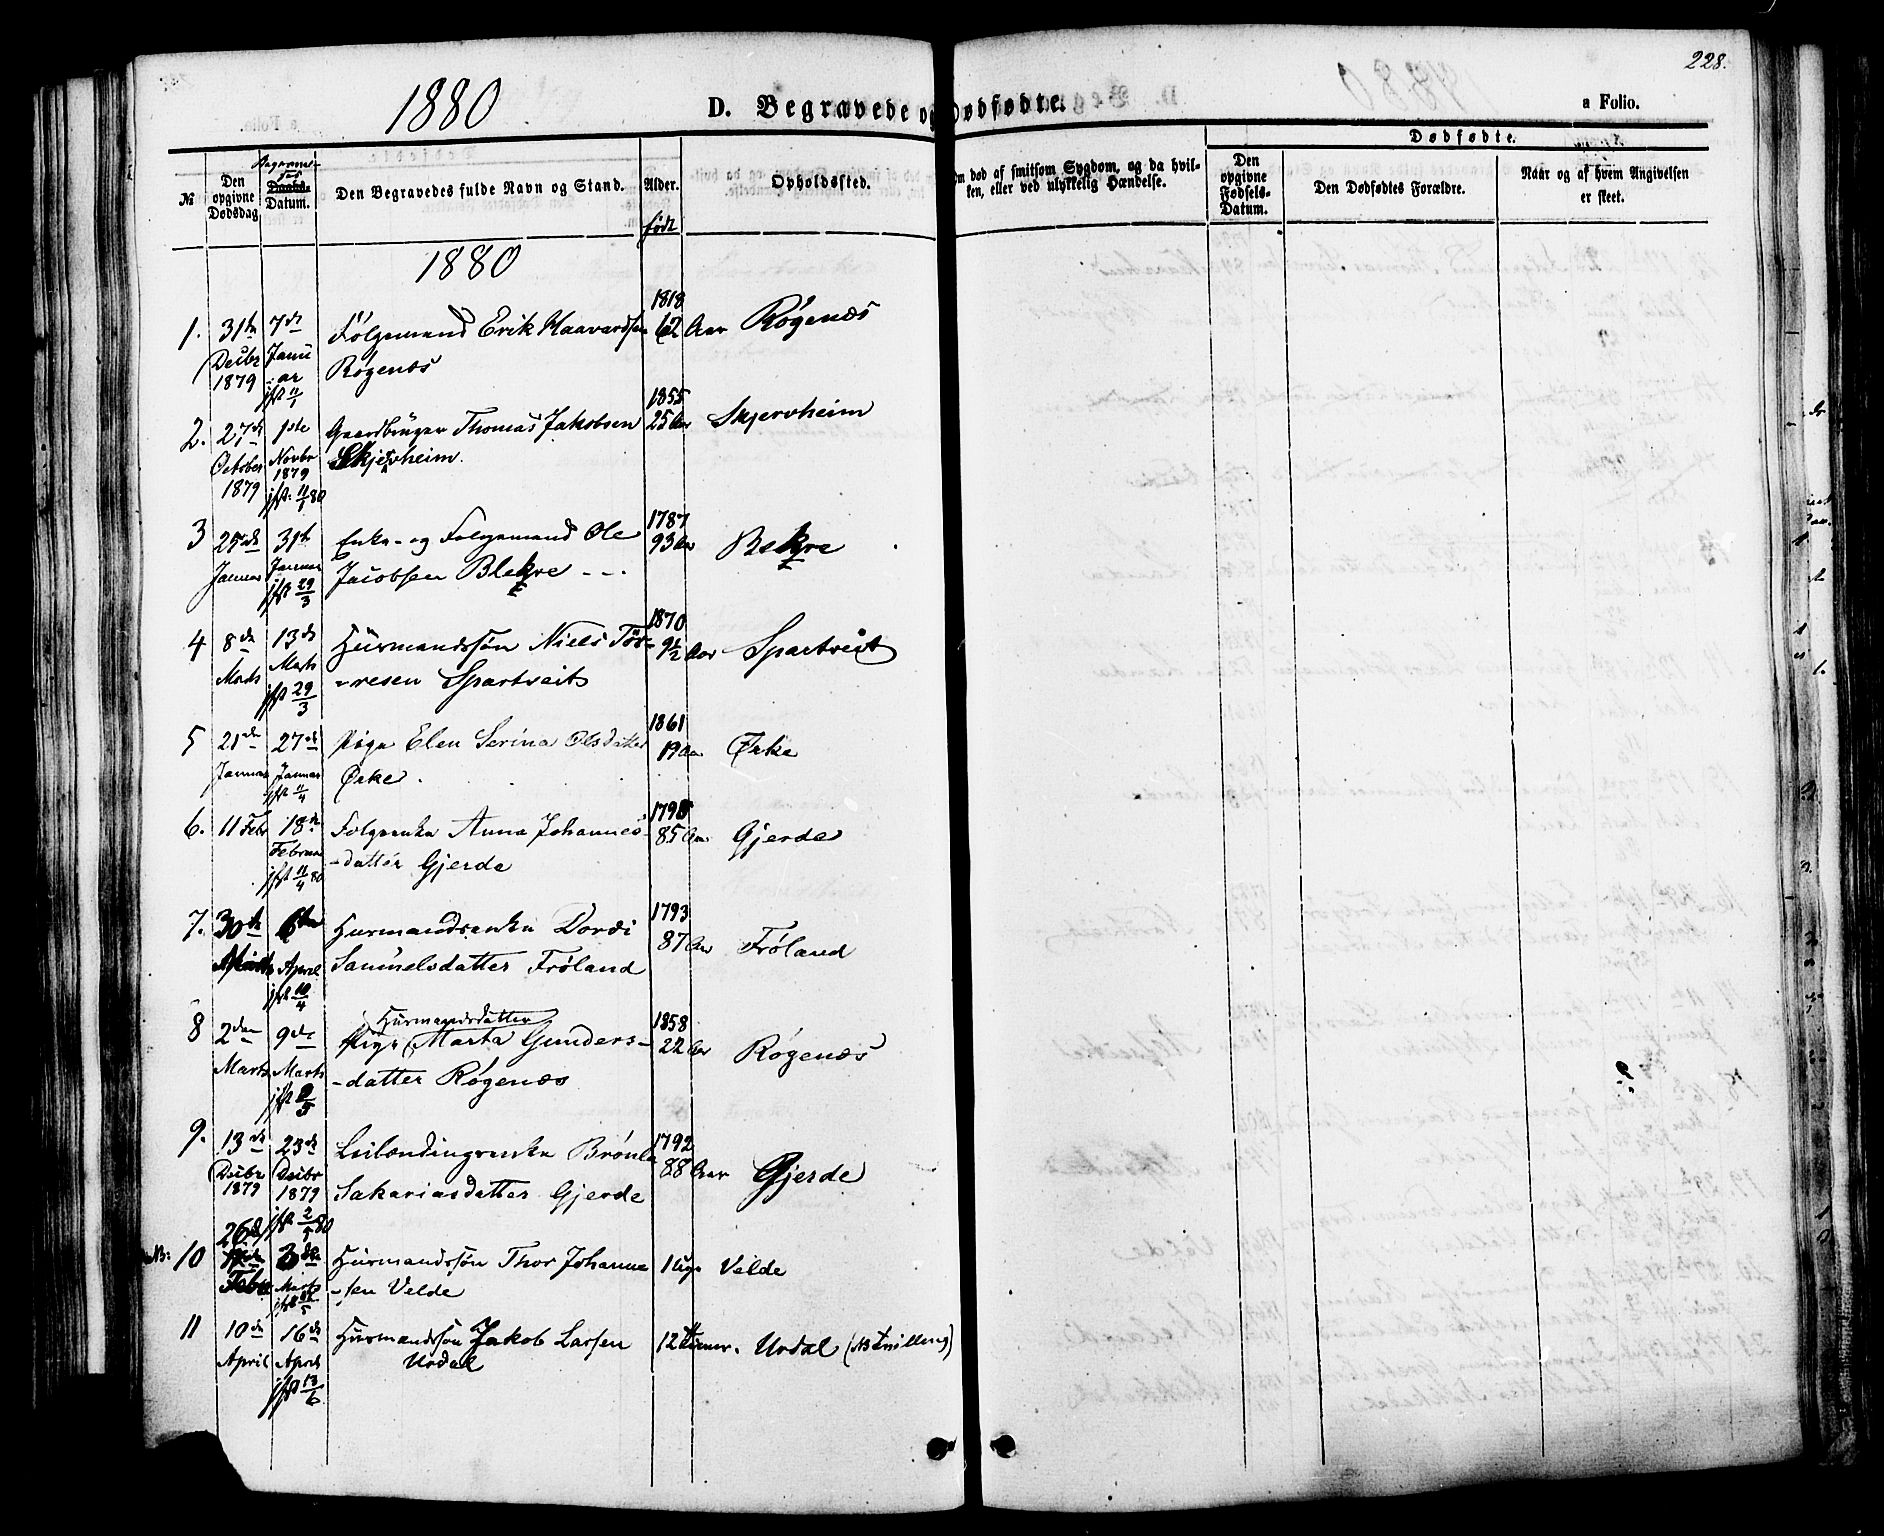 228.
1880
D. Begravede og Dødfødte.
a Folio.
Dødfødte.
№
Den opgivne Dødsdag
Begravelses Daabs-Datum.
Den Begravedes fulde Navn og Stand.
Alder.
født
Opholdssted.
Om død af smitsom Sygdom, og da hvilken, eller ved ulykkelig Hændelse.
Den opgivne Fødsels-Datum.
Den Dødfødtes Forældre.
Naar og af hvem Angivelsen er skeet.
1880
1. 31te Decbr 1879 7de Januar jfst 11/1 Følgemand Erik Haavardsen 1818 62 Aar Røgenæs
Røgenæs
2. 27de October 1879 1ste Novbr 1879 jfst. 11/1 80 Gaardbruger Thomas Jakobsen 1855 25 Aar Skjervheim
Skjervheim.
3 25de Januar 31te Januar jfst 29/3 Enke- og Følgemand Ole 1787 93 Aar Blekre
Jacobsen Blekre
4 8de Marts 13de Marts jfst 29/3 Husmandssøn Niels Tor- 1870 9½ Aar Spartveit
-resen Spartveit
5 21de Januar 27de Januar jfst 11/4 Pige Elen Serina Olsdatter 1861 19 Aar Ørke
Ørke.
6. 11 Febr 18de Februar jfst 11/4 80 Følgeenke Anna Johannes- 1795 85 Aar Gjerde
-datter Gjerde
7. 30te Marts 6te April jfst 10/4 Husmandsenke Dordi 1793 87 Aar Frøland
Samuelsdatter Frøland
8 2den Marts 9de Marts jfst 2/5 Husmandsdatter
Pige Marta Gunders- 1858 22 Aar Røgenæs
-datter Røgenæs
9. 13de Decbr 1879 23de Decbr 1879 jfst 2/5 80 Leilændingsenke Brønla 1792 88 Aar Gjerde
Sakariasdatter Gjerde
NB: 10 26de Febr 3de Marts Husmandssøn Thor Johanne- 1 Uge Velde
-sen Velde
11 10de April 16de April jfst 13/6 Husmandssøn Jakob Larsen 12 Timer. Urdal (NB Tvilling)
Urdal